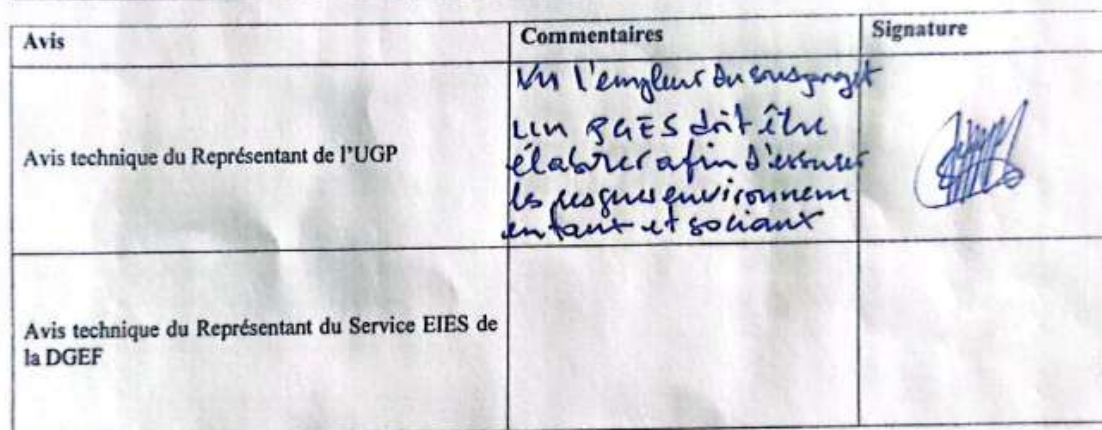 Avis Commentaires Signature
Avis technique du Représentant de l'UGP
Vu l'empleur du sousprojet
un PGES doit être
élaborer afin d'
les risques environnem
entaux et sociaux
Avis technique du Représentant du Service EIES de
la DGEF